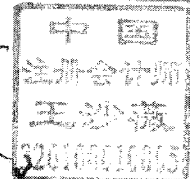 中国
注册会计师
王沙薇